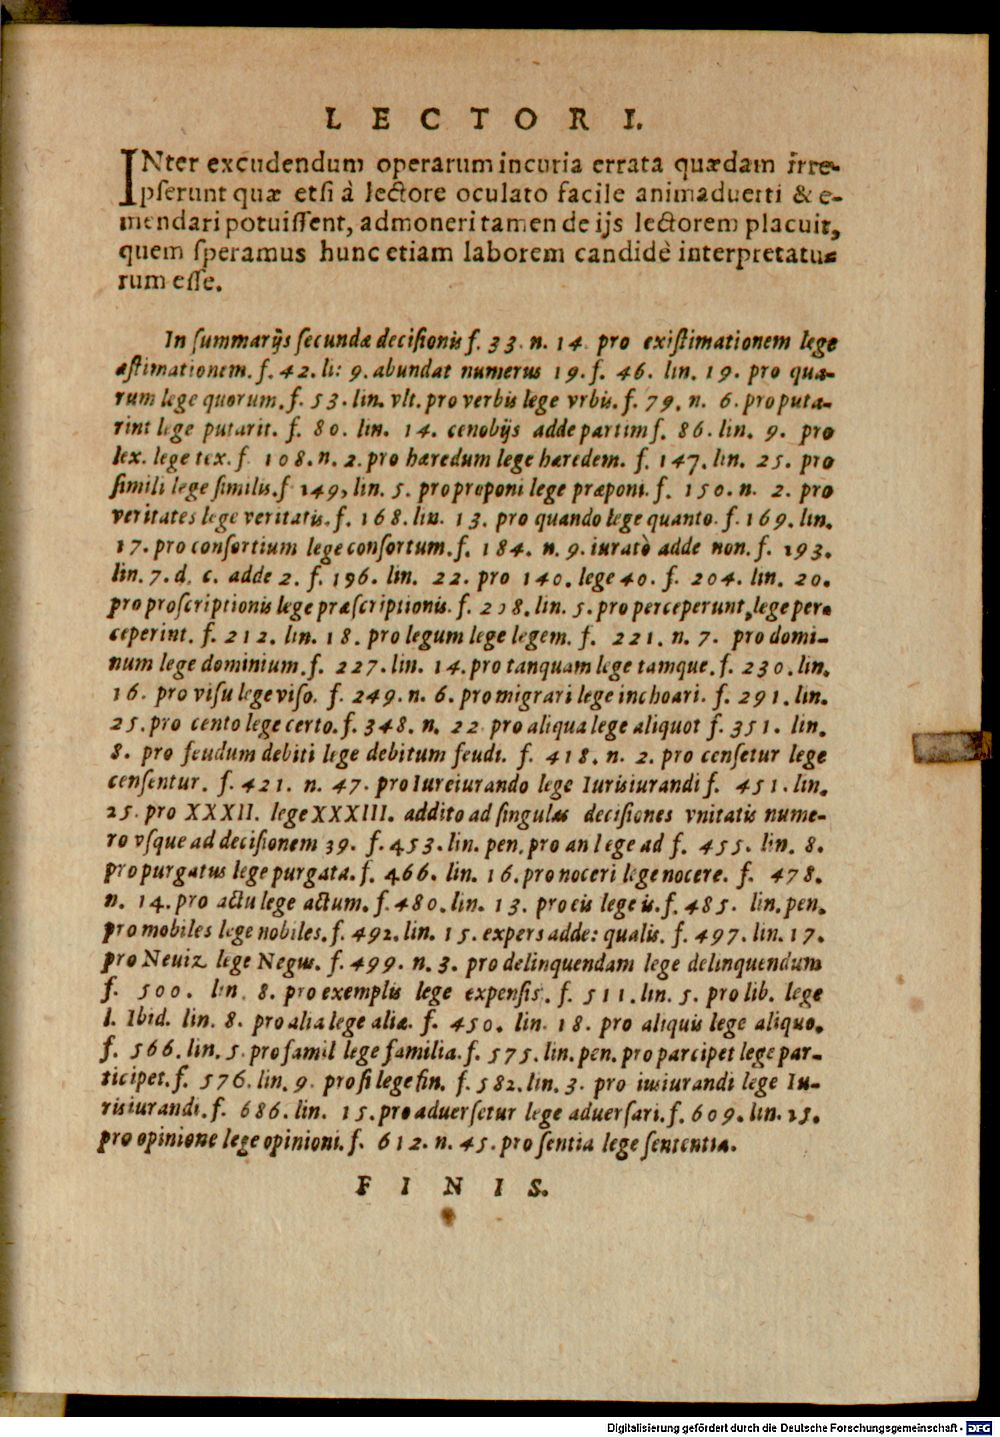 LECTORI.
INter excudendum operarum incuria errata quædam irre-
pserunt quæ etsi à lectore oculato facile animaduerti & e-
mendari potuissent, admoneri tamen de ijs lectorem placuit,
quem speramus hunc etiam laborem candidè interpretatu-
rum esse.
In summarijs secundæ decisionis f. 33. n. 14. pro existimationem lege
æstimationem. f. 42. li: 9. abundat numerus 19. f. 46. lin. 19. pro qua-
rum lege quorum. f. 53. lin. vlt. pro verbis lege vrbis. f. 79. n. 6. pro puta-
rint lege putarit. f. 80. lin. 14. cenobijs adde partim f. 86. lin. 9. pro
lex. lege tex. f. 108. n. 2. pro hæredum lege hæredem. f. 147. lin. 25. pro
simili lege similis. f 149, lin. 5. pro proponi lege præponi. f. 150. n. 2. pro
veritates lege veritatis. f. 168. lin. 13. pro quando lege quanto. f. 169. lin.
17. pro consortium lege consortum. f. 184. n. 9. iuratò adde non. f. 193.
lin. 7. d. c. adde 2. f. 196. lin. 22. pro 140. lege 40. f. 204. lin. 20.
pro proscriptionis lege præscriptionis. f. 208. lin. 5. pro perceperunt, lege per-
ceperint. f. 212. lin. 18. pro legum lege legem. f. 221. n. 7. pro domi-
num lege dominium. f. 227. lin. 14. pro tanquam lege tamque. f. 230. lin.
16. pro visu lege viso. f. 249. n. 6. pro migrari lege inchoari. f. 291. lin.
25. pro cento lege certo. f. 348. n. 22 pro aliqua lege aliquot f. 351. lin.
8. pro feudum debiti lege debitum feudi. f. 418. n. 2. pro censetur lege
censentur. f. 421. n. 47. pro Iureiurando lege Iurisiurandi f. 451. lin.
25. pro XXXII. lege XXXIII. addito ad singulas decisiones vnitatis nume-
ro vsque ad decisionem 39. f. 453. lin. pen. pro an lege ad f. 455. lin. 8.
pro purgatus lege purgata. f. 466. lin. 16. pro noceri lege nocere. f. 478.
n. 14. pro actu lege actum. f. 480. lin. 13. pro eis lege is. f. 485. lin. pen.
pro mobiles lege nobiles. f. 492. lin. 15. expers adde: qualis. f. 497. lin. 17.
pro Neuiz lege Negus. f. 499. n. 3. pro delinquendam lege delinquendum
f. 500. lin. 8. pro exemplis lege expensis. f. 511. lin. 5. pro lib. lege
l. Ibid. lin. 8. pro alia lege aliæ. f. 450. lin. 18. pro aliquis lege aliquo.
f. 566. lin. 5. pro famil lege familia. f. 575. lin. pen. pro parcipet lege par-
ticipet. f. 576. lin. 9. pro si lege fin. f. 582. lin. 3. pro iusiurandi lege Iu-
risiurandi. f. 686. lin. 15. pro aduersetur lege aduersari. f. 609. lin. 25.
pro opinione lege opinioni. f. 612. n. 45. pro sentia lege sententia.
FINIS.
Digitalisierung gefördert durch die Deutsche Forschungsgemeinschaft - DFG